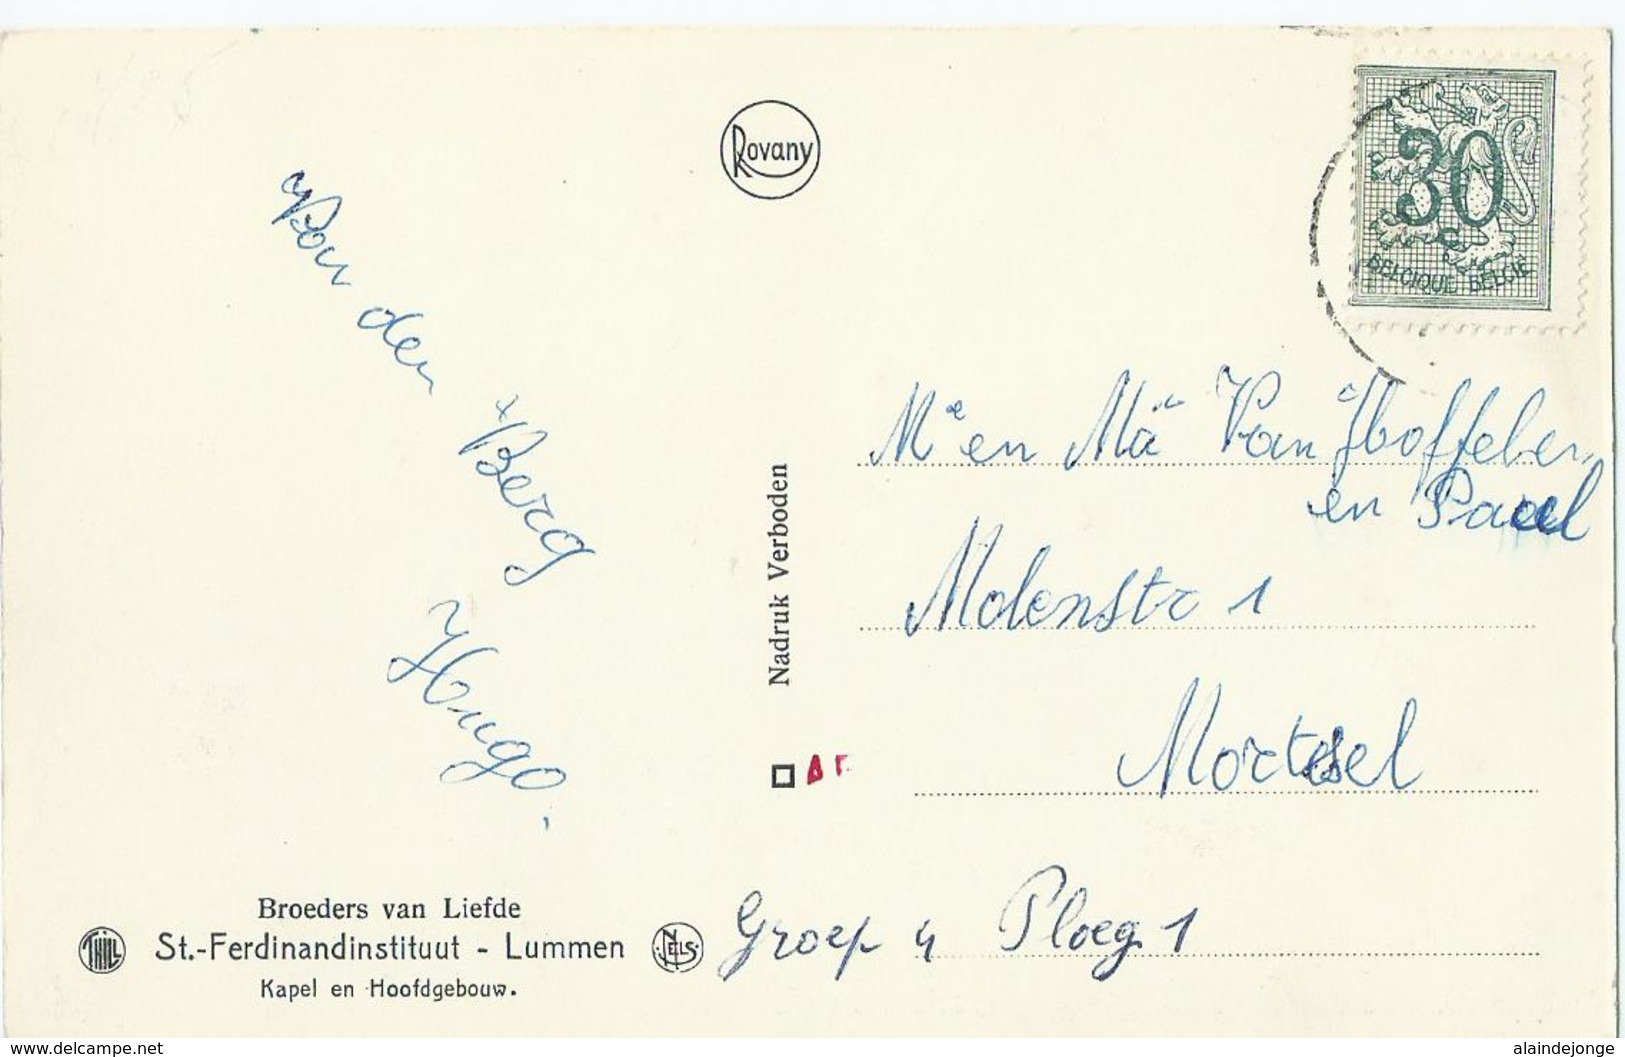 Rovany
30
BELGIQUE BELGIË
Van den Berg
Hugo.
Nadruk Verboden
Mr en Ma Van
en Paul
Molenstr 1
Mortsel
Groep 4 Ploeg 1
Broeders van Liefde
THILL St.-Ferdinandinstituut - Lummen NELS
Kapel en Hoofdgebouw.
www.delcampe.net alaindejonge